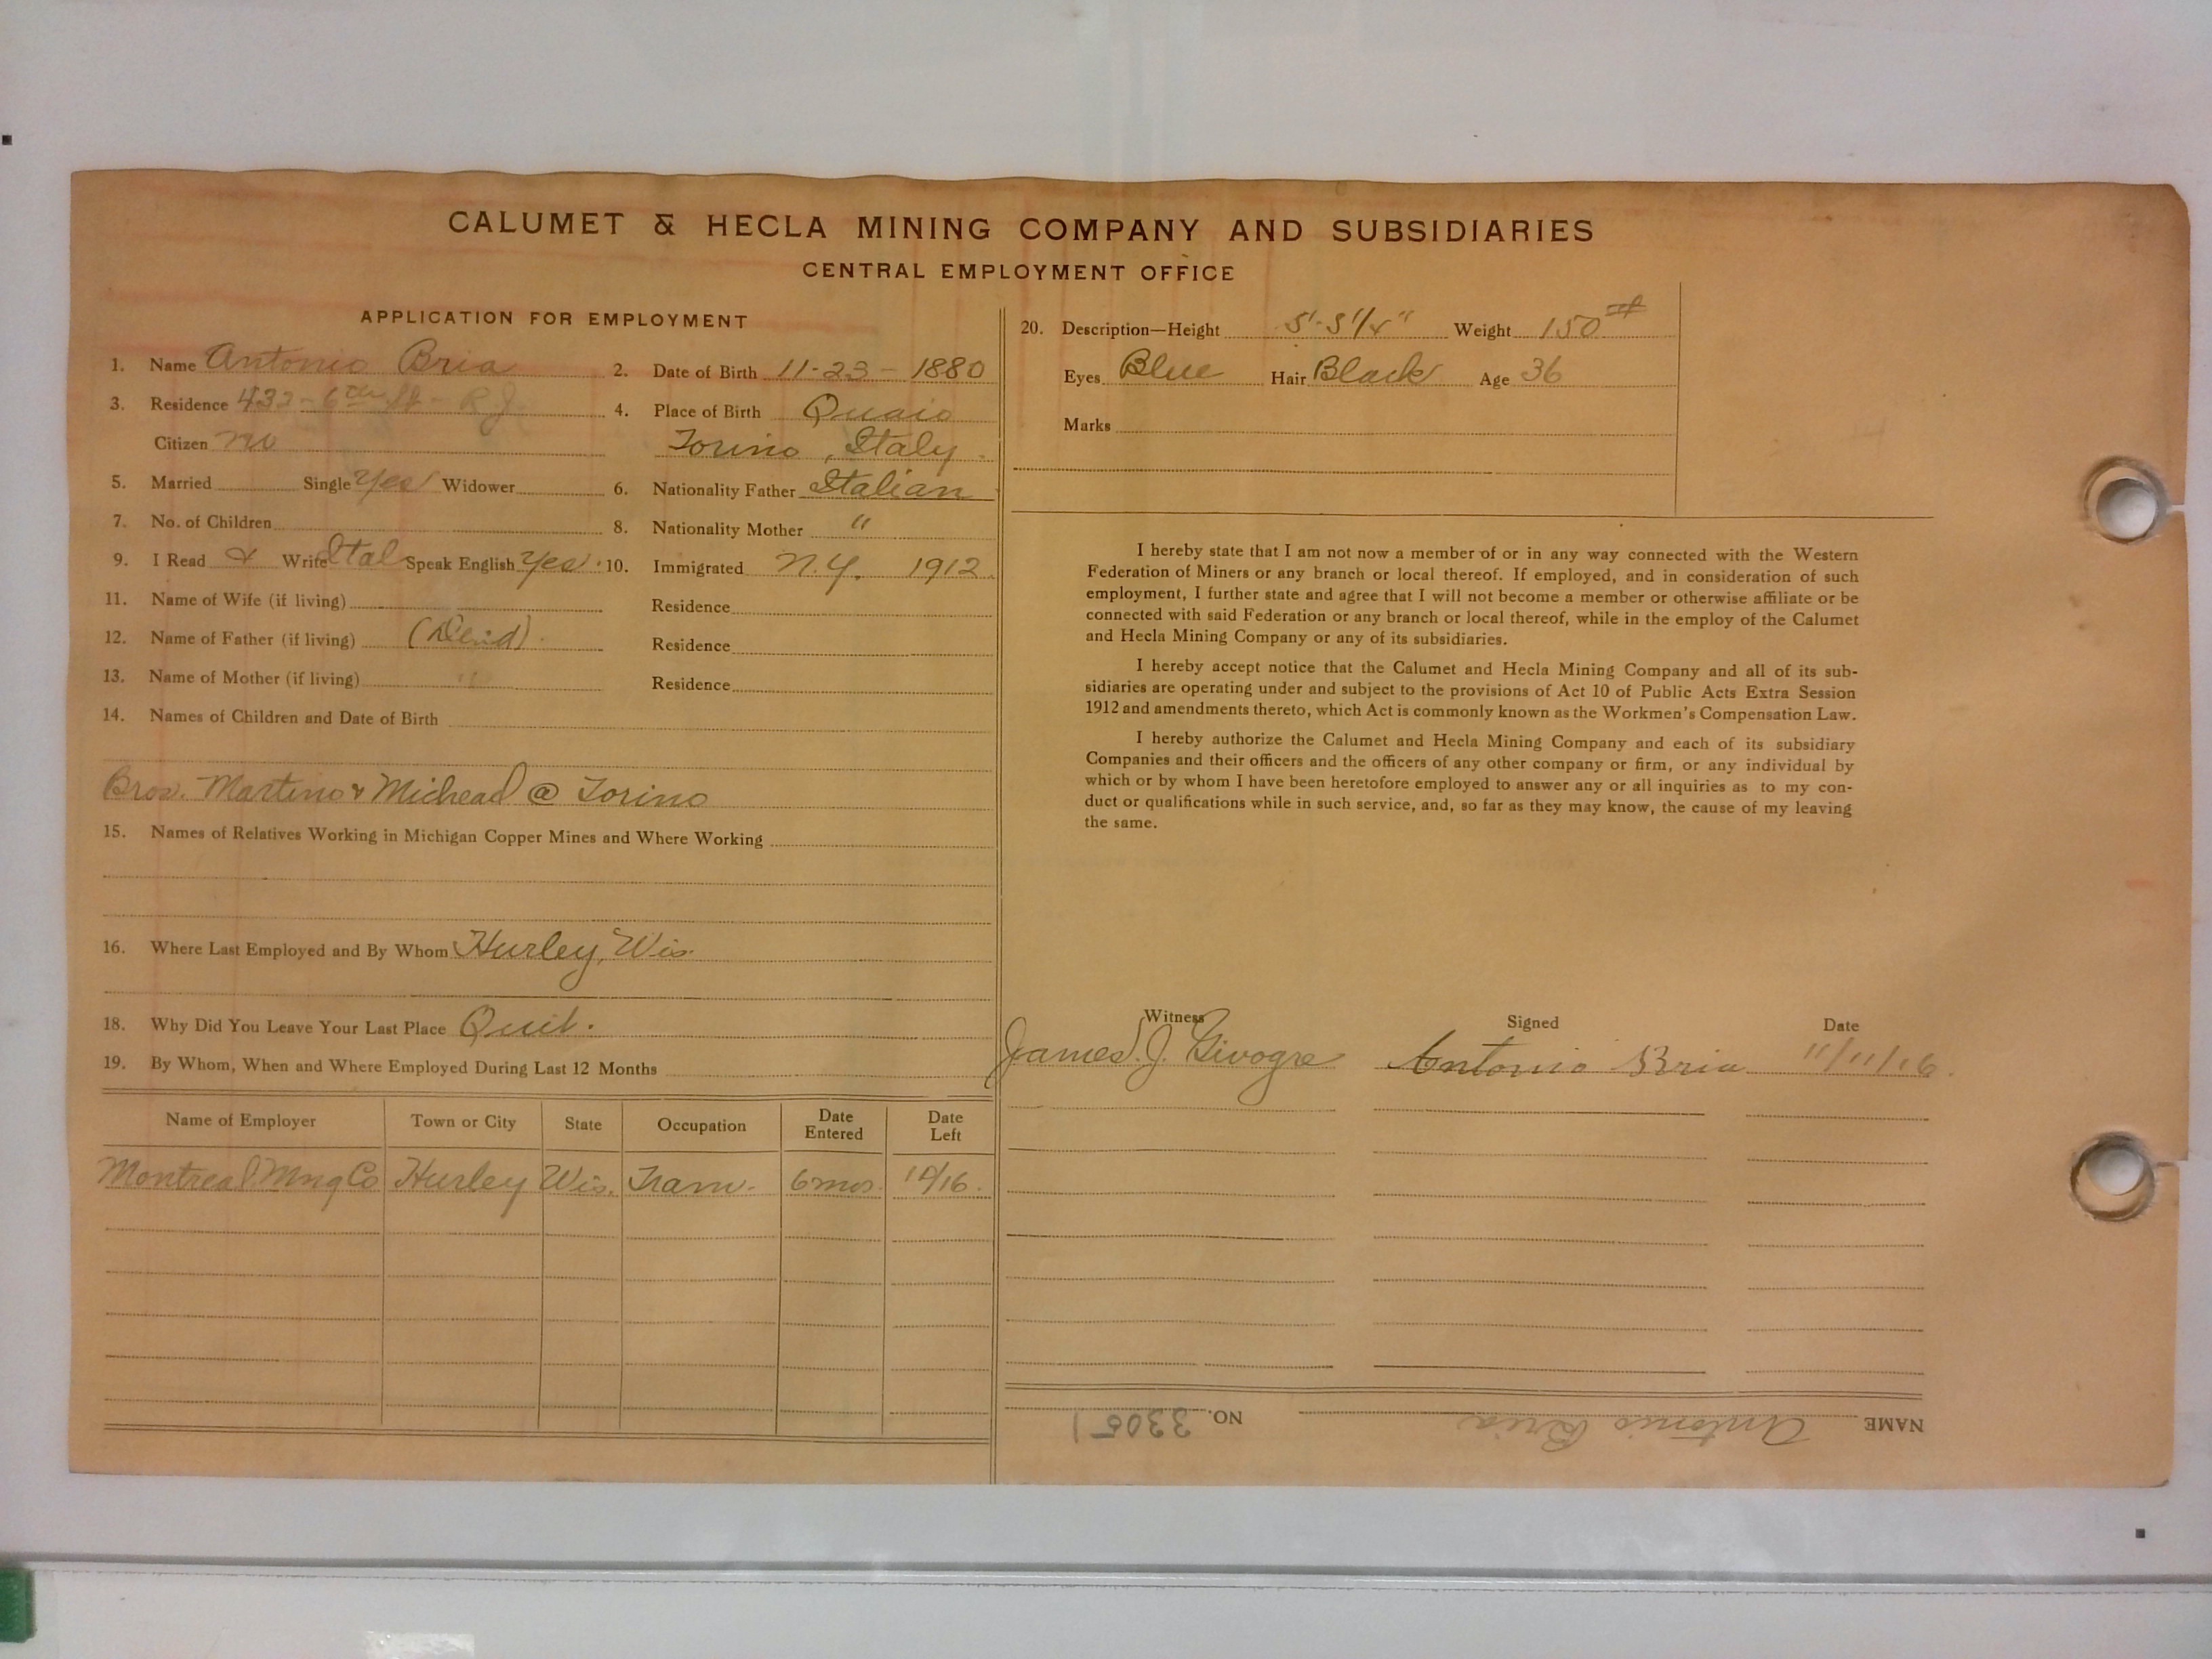 CALUMET & HECLA MINING COMPANY AND SUBSIDIARIES
CENTRAL EMPLOYMENT OFFICE
APPLICATION FOR EMPLOYMENT
1. Name Antonio Bria 2. Date of Birth 11-23-1880
3. Residence 432-6th St - R.J. 4. Place of Birth Quaio
Citizen no Torino, Italy.
5. Married Single Yes Widower 6. Nationality Father Italian
7. No. of Children 8. Nationality Mother "
9. I Read & Write Ital Speak English Yes. 10. Immigrated N.Y. 1912.
11. Name of Wife (if living) Residence
12. Name of Father (if living) (Dead). Residence
13. Name of Mother (if living) " Residence
14. Names of Children and Date of Birth
Bros. Martino & Micheal @ Torino
15. Names of Relatives Working in Michigan Copper Mines and Where Working
16. Where Last Employed and By Whom Hurley, Wis.
18. Why Did You Leave Your Last Place Quit.
19. By Whom, When and Where Employed During Last 12 Months
Name of Employer Town or City State Occupation Date Entered Date Left
Montreal Mng Co Hurley Wis. Tram. 6 mos. 10/16.
20. Description—Height 5'-5 1/4" Weight 150 #
Eyes Blue Hair Black Age 36
Marks
I hereby state that I am not now a member of or in any way connected with the Western
Federation of Miners or any branch or local thereof. If employed, and in consideration of such
employment, I further state and agree that I will not become a member or otherwise affiliate or be
connected with said Federation or any branch or local thereof, while in the employ of the Calumet
and Hecla Mining Company or any of its subsidiaries.
I hereby accept notice that the Calumet and Hecla Mining Company and all of its sub-
sidiaries are operating under and subject to the provisions of Act 10 of Public Acts Extra Session
1912 and amendments thereto, which Act is commonly known as the Workmen's Compensation Law.
I hereby authorize the Calumet and Hecla Mining Company and each of its subsidiary
Companies and their officers and the officers of any other company or firm, or any individual by
which or by whom I have been heretofore employed to answer any or all inquiries as to my con-
duct or qualifications while in such service, and, so far as they may know, the cause of my leaving
the same.
Witness Signed Date
James. J. Givogre Antonio Bria 11/11/16.
NAME Antonio Bria NO. 33051